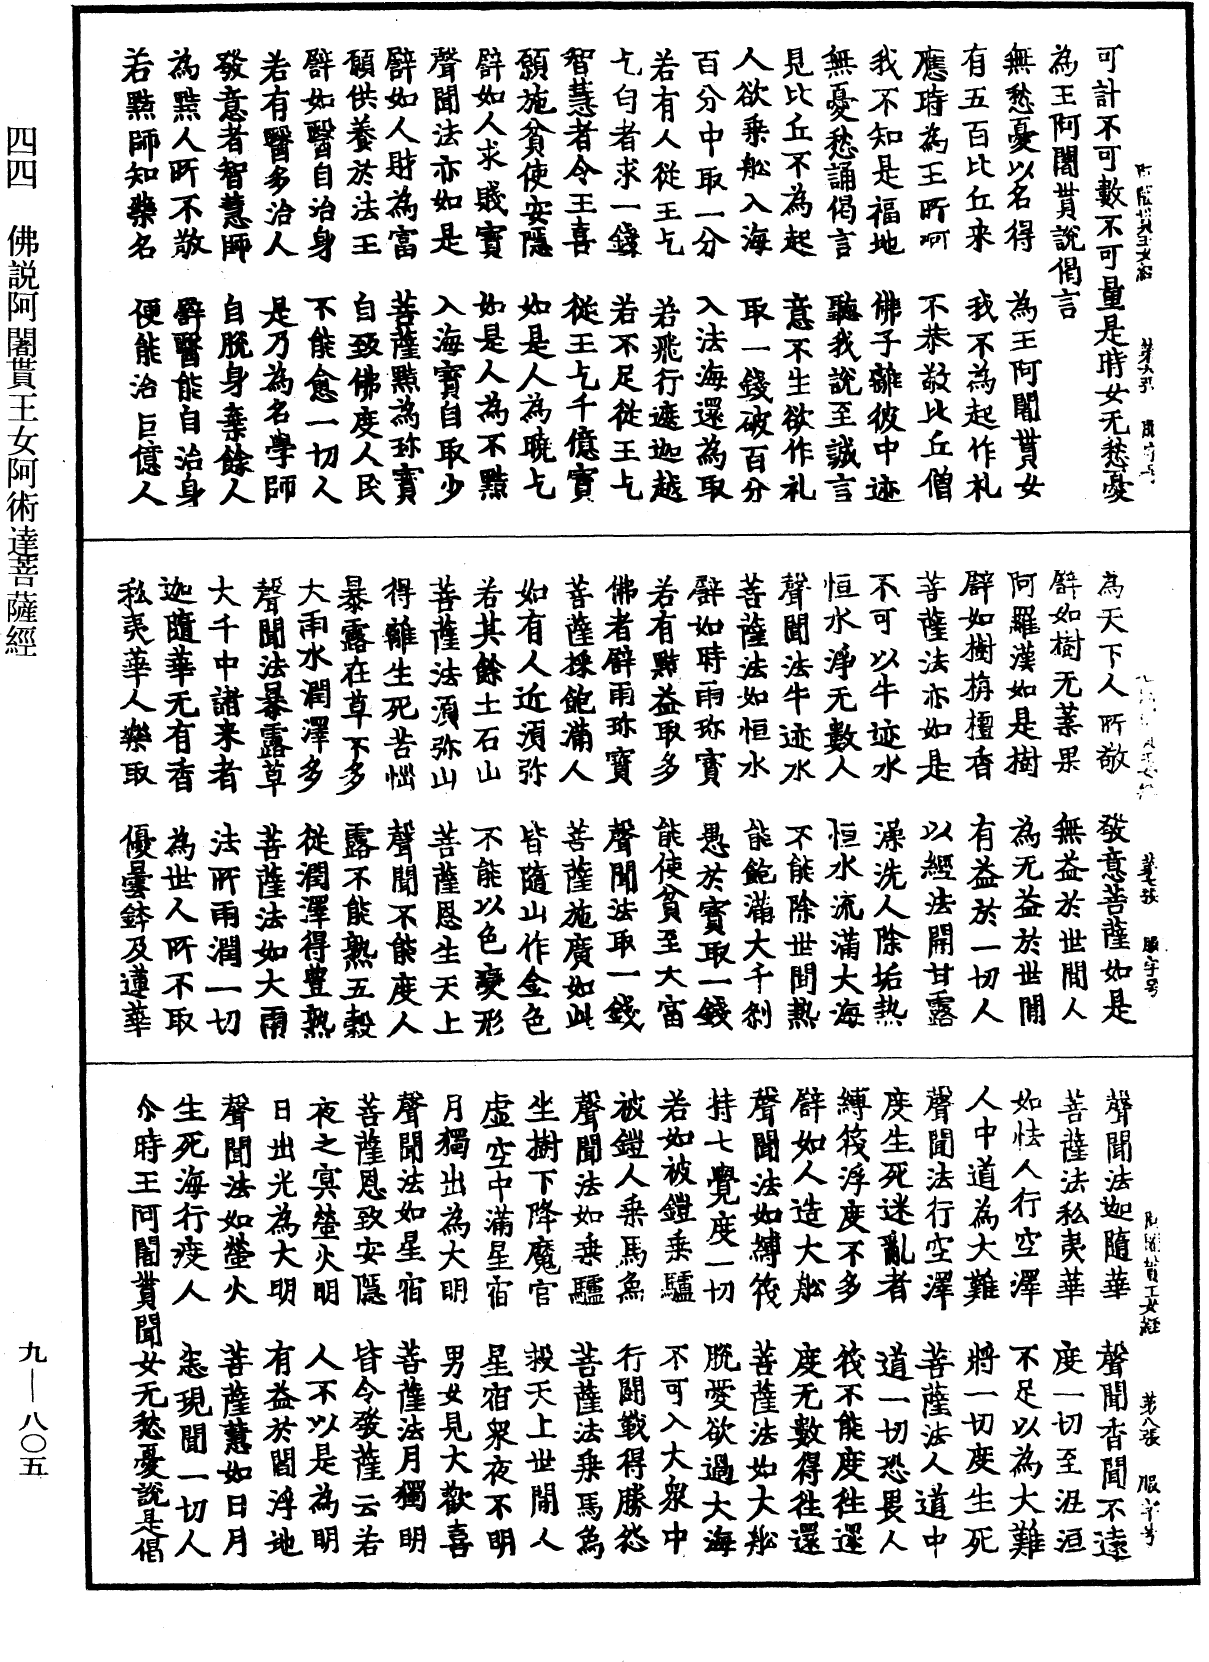 可計不可數不可量是時女无愁憂
為王阿闍貰說偈言
無愁憂以名得　為王阿闍貰女
有五百比丘来　我不為起作礼
應時為王所呵　不恭敬比丘僧
我不知是福地　佛子離彼中迹
無憂愁誦偈言　聽我說至誠言
見比丘不為起　意不生欲作礼
人欲乘舩入海　取一錢破百分
百分中取一分　入法海還為取
若有人從王乞　若飛行遮迦越
乞匄者求一錢　若不足從王乞
智慧者令王喜　從王乞千億寳
願施貧使安隱　如是人為曉乞
譬如人求賤寳　如是人為不黠
聲聞法亦如是　入海寳自取少
譬如人財為富　菩薩黠為珎寳
願供養於法王　自致佛度人民
譬如醫自治身　不能愈一切人
若有醫多治人　是乃為名學師
發意者智慧師　自脫身棄餘人
為黠人所不敬　譬醫能自治身
若黠師知藥名　便能治巨億人
為天下人所敬　發意菩薩如是
譬如樹无菓果　無益於世間人
阿羅漢如是樹　為无益於世間
譬如樹栴檀香　有益於一切人
菩薩法亦如是　以經法開甘露
不可以牛迹水　澡洗人除垢熱
恒水淨无數人　恒水流滿大海
聲聞法牛迹水　不能除世間熱
菩薩法如恒水　能飽滿大千剎
譬如時雨珎寳　愚於寳取一錢
若有黠益取多　能使貧至大富
佛者譬雨珎寳　聲聞法取一錢
菩薩採飽滿人　菩薩施廣如此
如有人近湏弥　皆隨山作金色
若其餘土石山　不能以色變形
菩薩法湏弥山　菩薩恩生天上
得離生死苦惱　聲聞不能度人
暴露在草不多　露不能熟五穀
大雨水潤澤多　從潤澤得豊熟
聲聞法暴露草　菩薩法如大雨
大千中諸来者　法所雨潤一切
迦隨華无有香　為世人所不取
私夷華人樂取　優曇鉢及蓮華
聲聞法迦隨華　聲聞香聞不遠
菩薩法私夷華　度一切至泥洹
如怯人行空澤　不足以為大難
人中道為大難　將一切度生死
聲聞法行空澤　菩薩法人道中
度生死迷亂者　道一切恐畏人
縛筏浮度不多　筏不能度往還
譬如人造大舩　度无數得往還
聲聞法如縛筏　菩薩法如大舩
持七覺度一切　脫愛欲過大海
若如被鎧乘驢　不可入大衆中
被鎧人乘馬鬼　行鬪戰得勝怨
聲聞法如乘驢　菩薩法乘馬為
坐樹下降魔官　投天上世間人
虛空中滿星宿　星宿衆夜不明
月獨出為大明　男女見大歡喜
聲聞法如星宿　菩薩法月獨明
菩薩恩致安隱　皆令發薩云若
夜之冥螢火明　人不以是為明
日出光為大明　有益於閻浮地
聲聞法如螢火　菩薩慧如日月
生死海行疲人　悉現聞一切人
尒時王阿闍貰聞女无愁憂說是偈
四四　佛説阿闍貰王女阿術達菩薩經
九—八〇五